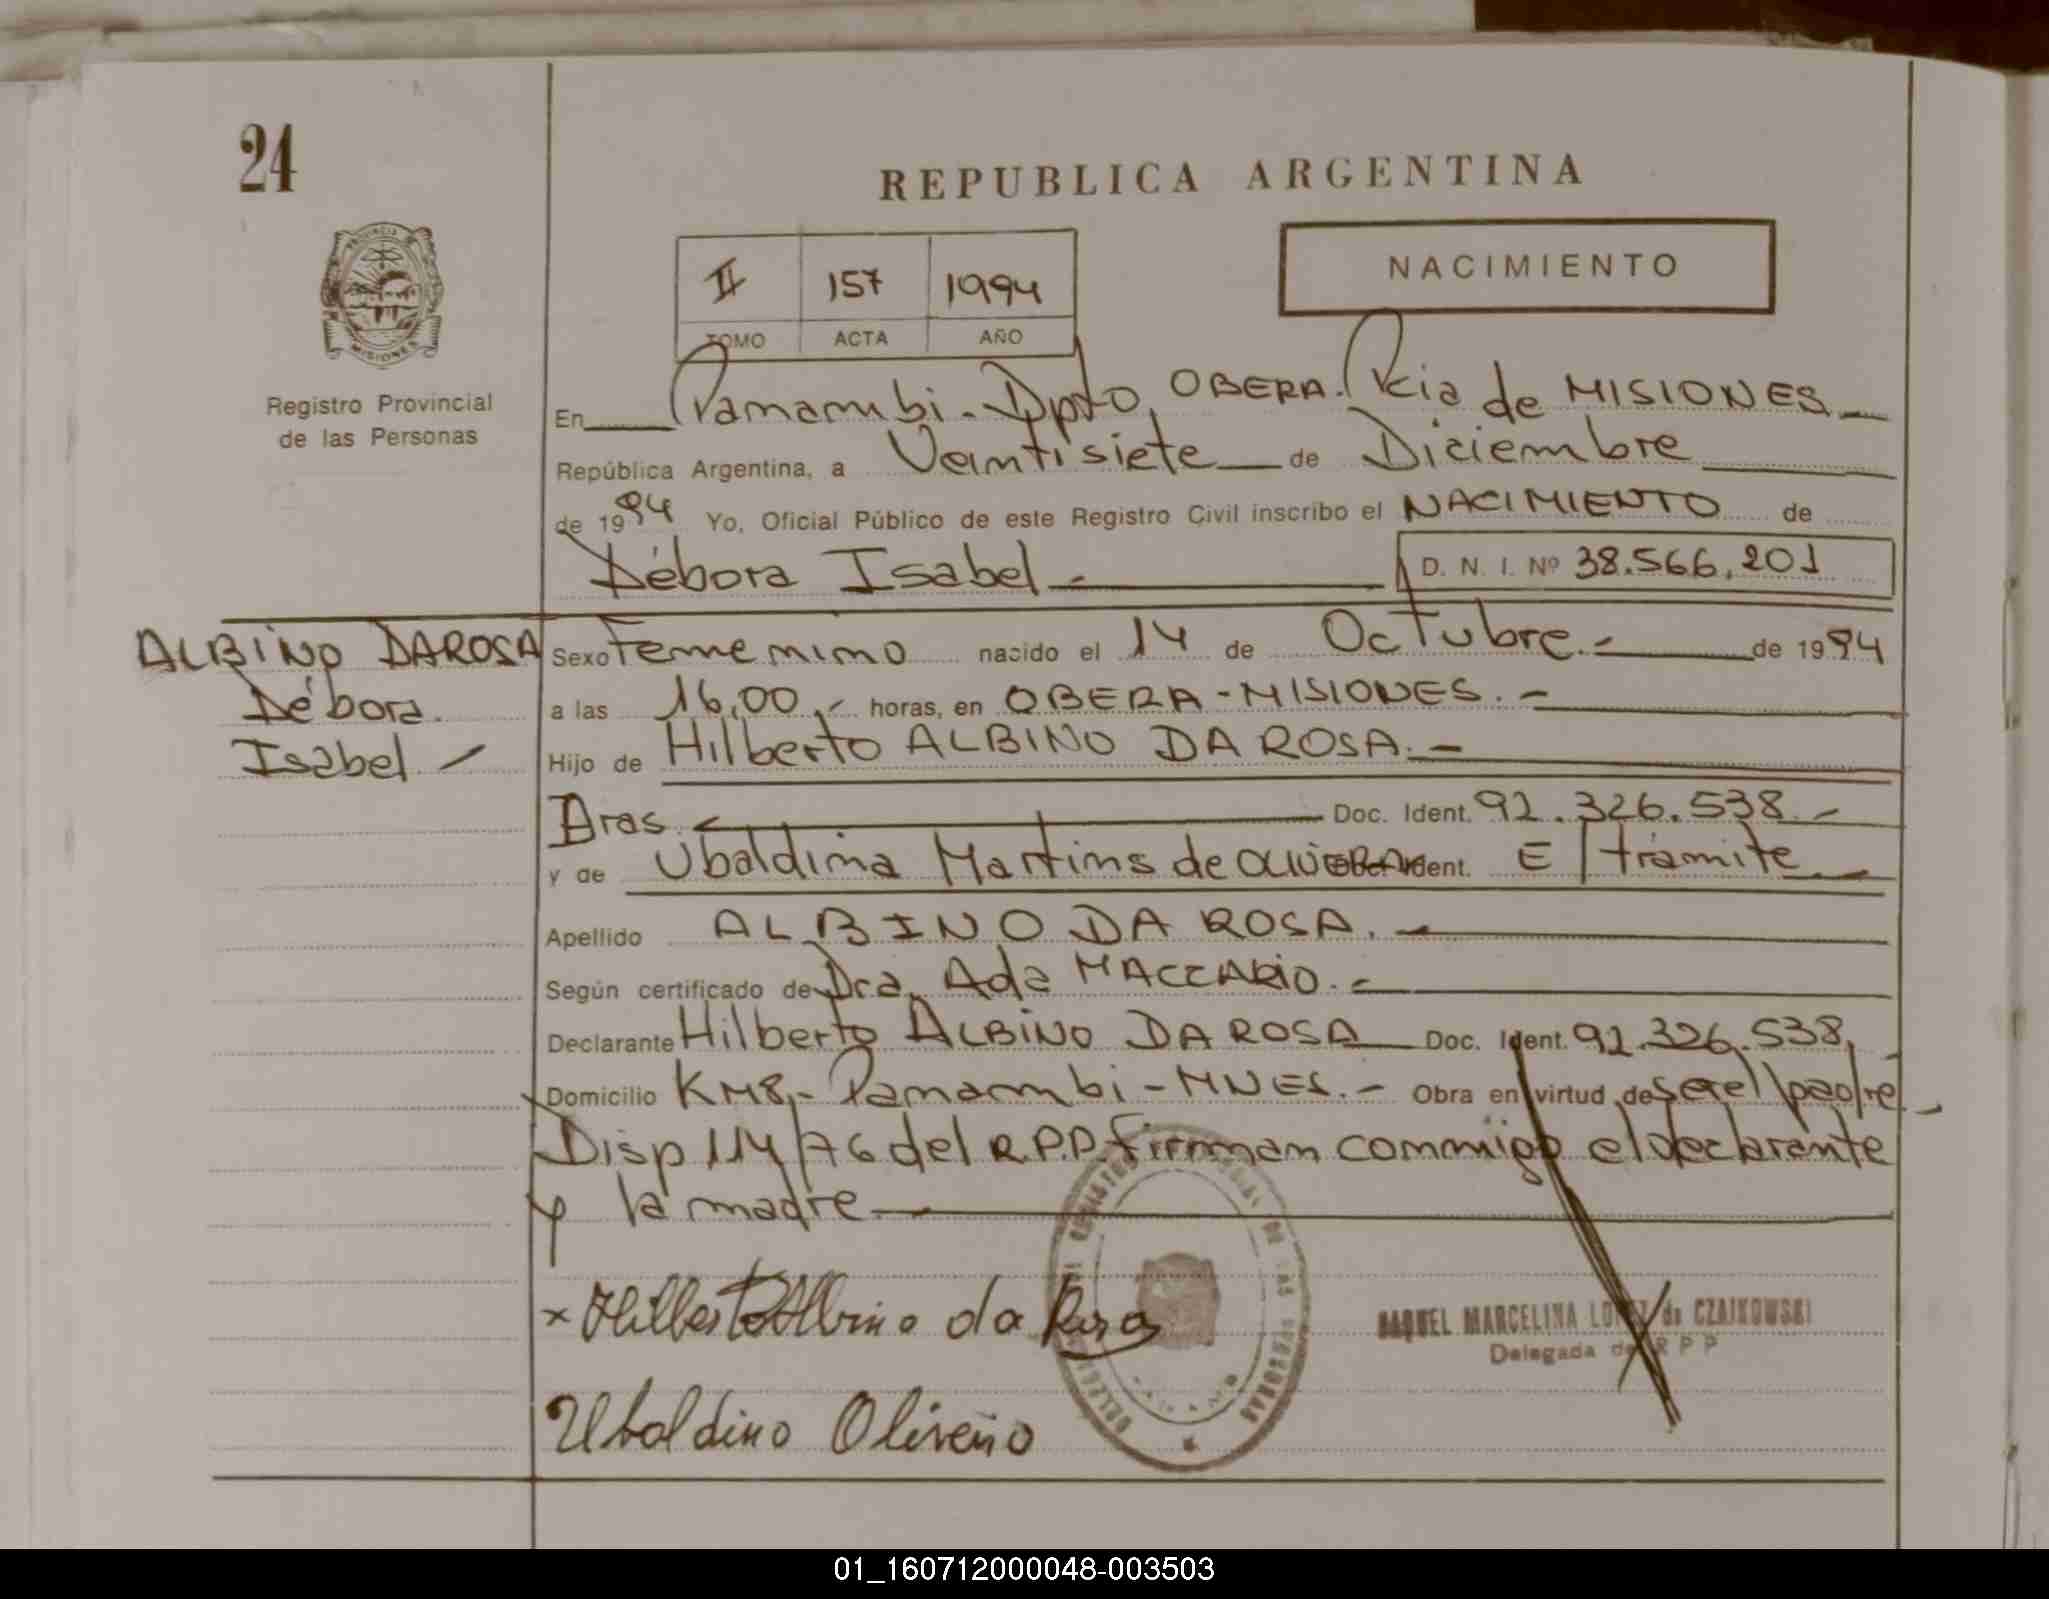 24
REPUBLICA ARGENTINA
PROVINCIA DE
MISIONES
II 157 1994
TOMO ACTA AÑO
NACIMIENTO
Registro Provincial
de las Personas
En Panambi. Dpto, OBERA. Pcia de MISIONES
República Argentina, a Veintisiete de Diciembre
de 1994 Yo, Oficial Público de este Registro Civil inscribo el NACIMIENTO de
Débora Isabel.- D. N. I. Nº 38.566.201
ALBINO DA ROSA
Débora
Isabel.-
Sexo Femenino nacido el 14 de Octubre.- de 1994
a las 16,00.- horas, en OBERA-MISIONES.-
Hijo de Hilberto ALBINO DA ROSA.-
Bras. Doc. Ident. 92.326.538.-
y de Ubaldina Martins de Ident. E/trámite
Apellido ALBINO DA ROSA.-
Según certificado de Dra. Ada MACCARIO.-
Declarante Hilberto ALBINO DA ROSA Doc. Ident. 92.326.538,
Domicilio KM8,- Panambi-MNES.- Obra en virtud de ser el padre.-
Disp 114/76 del R.P.P. firman conmigo el declarante
y la madre
x Hilberto Albino da Rosa
RAQUEL MARCELINA LOPEZ de CZAIKOWSKI
Delegada del R P P
Ubaldino
01_160712000048-003503